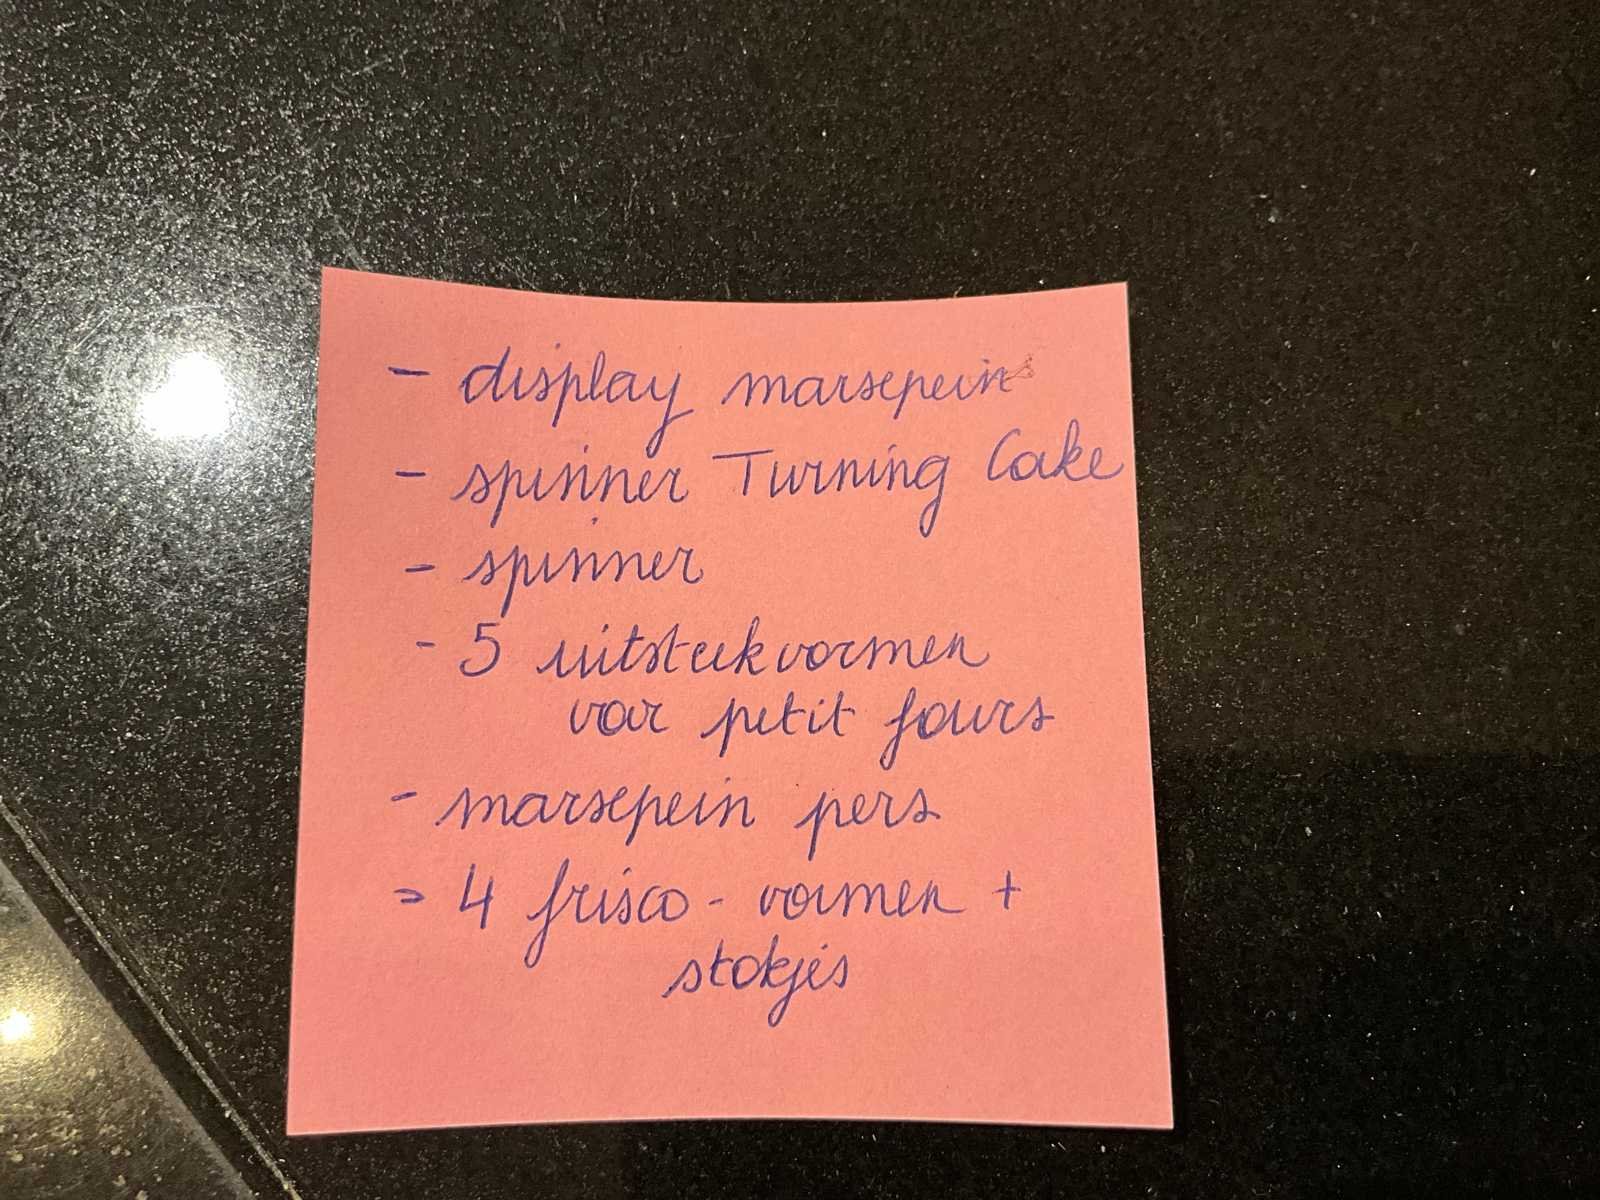 - display marsepein
- spinner Turning Cake
- spinner
- 5 uitsteekvormen
voor petit fours
- marsepein pers
- 4 frisco - vormen +
stokjes